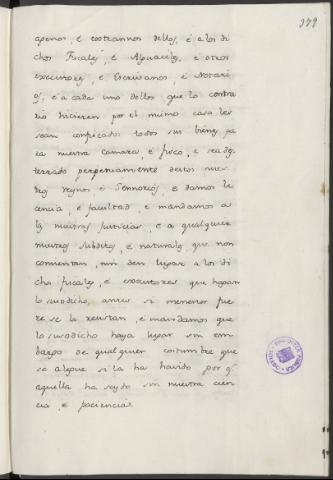 379
agenos, è costrannos dellos, è a los di
chos Fiscales, è Alguaciles, è otros
executores, è Escrivanos, è Notari
os, è a cada uno dellos que lo contra
rio hicieren por el mismo caso les
sean confiscados todos sus bienes pa
ra nuestra Camara, è fisco, è sea des
terrado perpetuamente destos nues
tros reynos è Sennorios, è damos li
cencia, è facultad, è mandamos a
las nuestras justicias, è a qualquier
nuestros subditos, è naturales que non
consientan, nin den lugar a los di
chos fiscales, è executores que hagan
lo susodicho, antes si menester fue
re se la resistan, è mandamos que
lo susodicho haya lugar sin em
bargo de qualquier costumbre que
se alegue si la ha havido por q.e
aquella ha seydo sin nuestra cien
cia, è paciencia.